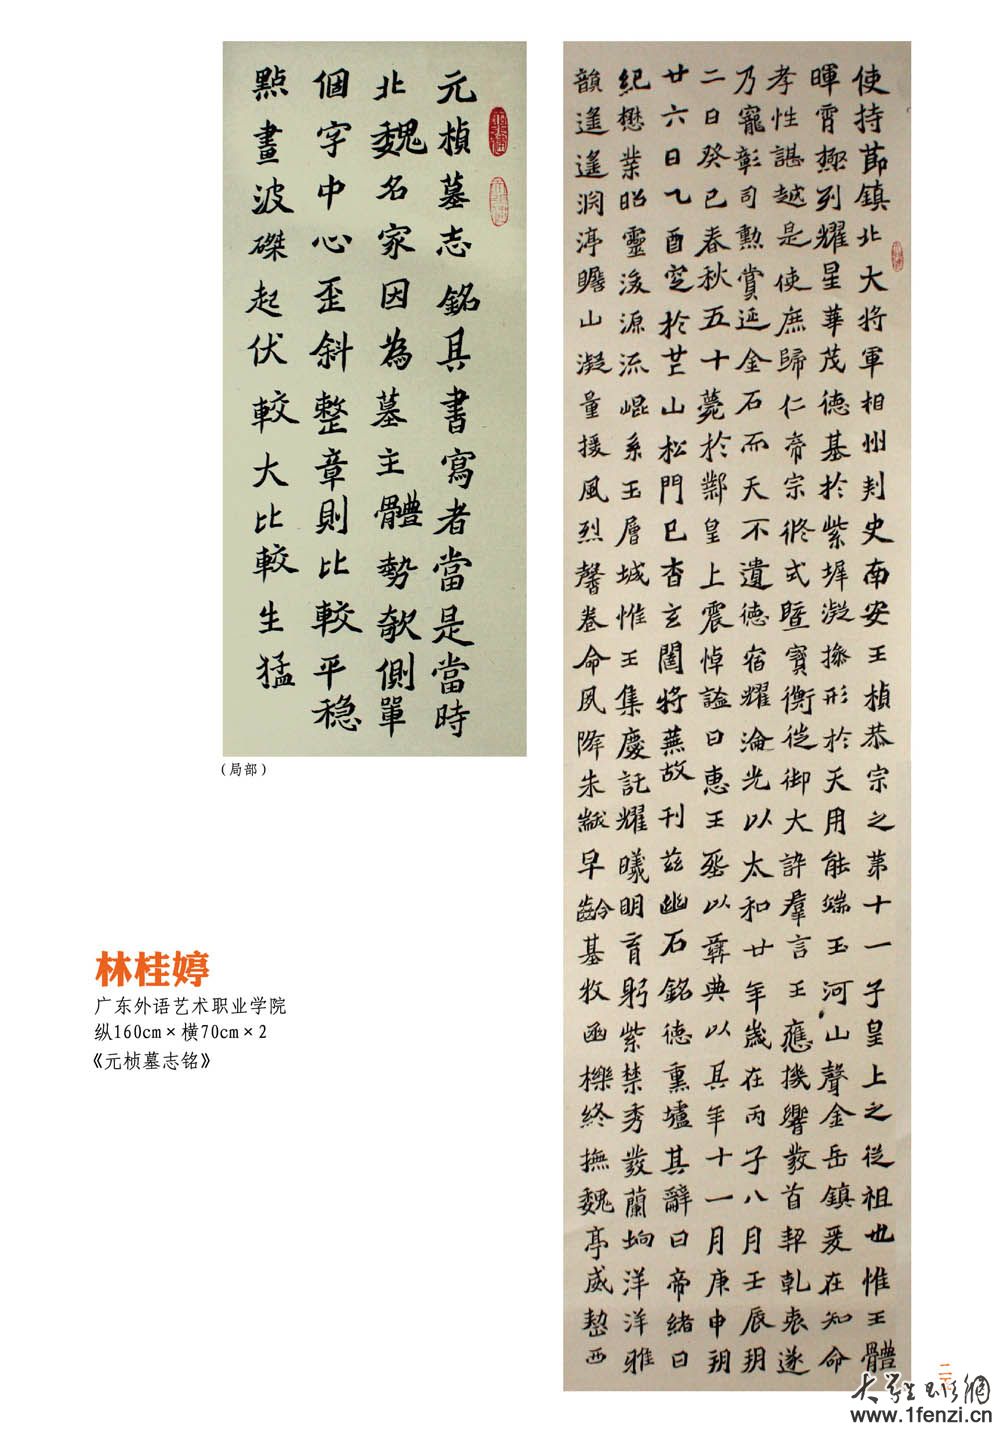 元楨墓志銘其書寫者當是當時
北魏名家因為墓主體勢欹側單
個字中心歪斜整章則比較平稳
點畫波磔起伏較大比較生猛
（局部）
使持節鎮北大將軍相州刾史南安王楨恭宗之第十一子皇上之從祖也惟王體
暉霄極列耀星華茂德基於紫墀凝操形於天用能端玉河山聲金岳鎮爰在知命
孝性諶越是使庶歸仁帝宗攸式暨寳衡從御大訴羣言王應機響發首契乾衷遂
乃寵彰司勳賞延金石而天不遺德宿耀淪光以太和廿年歲在丙子八月壬辰朔
二日癸巳春秋五十薨於鄴皇上震悼諡曰惠王丞以彝典以其年十一月庚申朔
廿六日乙酉窆於芒山松門已杳玄闉將蕪故刊茲幽石銘德熏壚其辭曰帝緒曰
紀懋業昭靈浚源流崐系玉層城惟王集慶託耀曦明育躬紫禁秀發蘭坰洋洋雅
韻遙遙淵渟瞻山凝量援風烈馨卷命夙降朱黻早齡基牧函櫟終撫魏亭威愸西
林桂婷
广东外语艺术职业学院
纵160cm×横70cm×2
《元桢墓志铭》
大学生书法网
www.1fenzi.cn